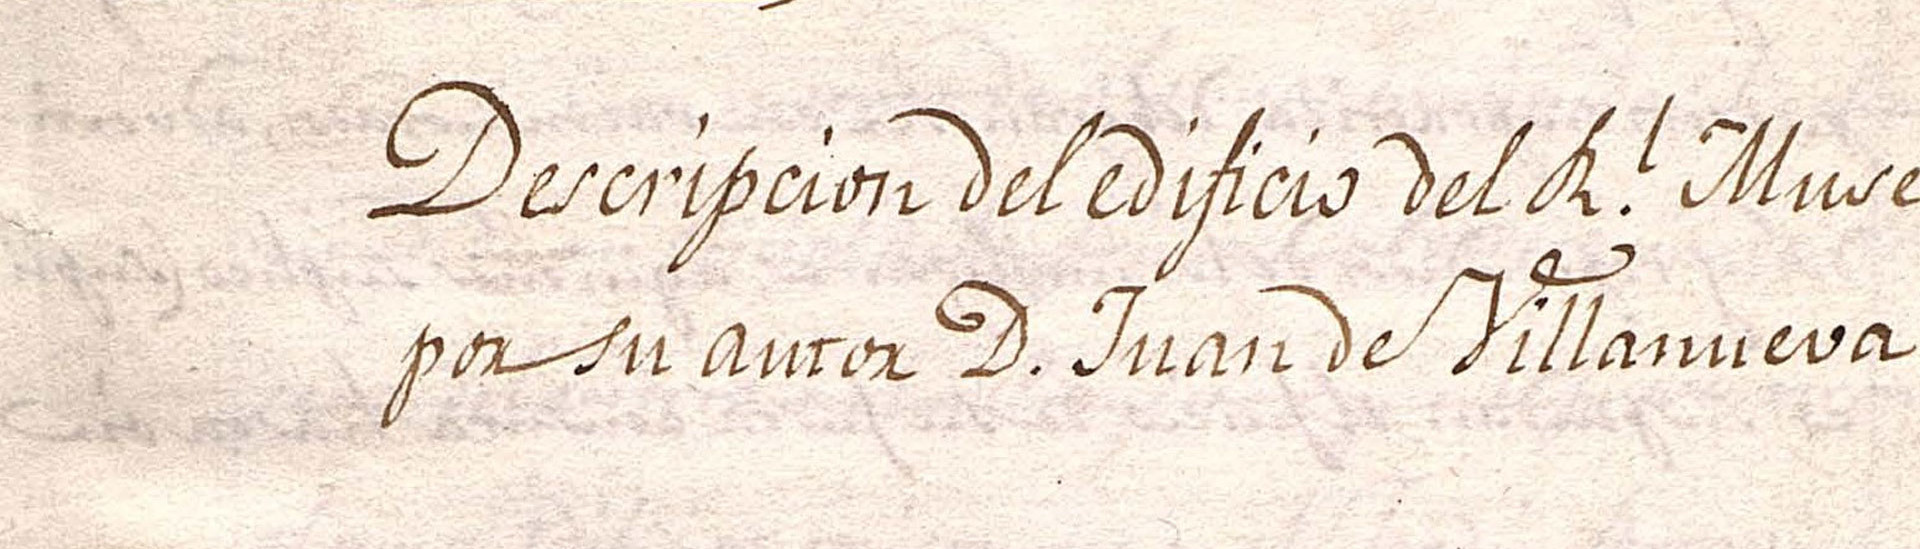 Descripcion del edificio del R.l Muse
por su autor D. Juan de Villanueva